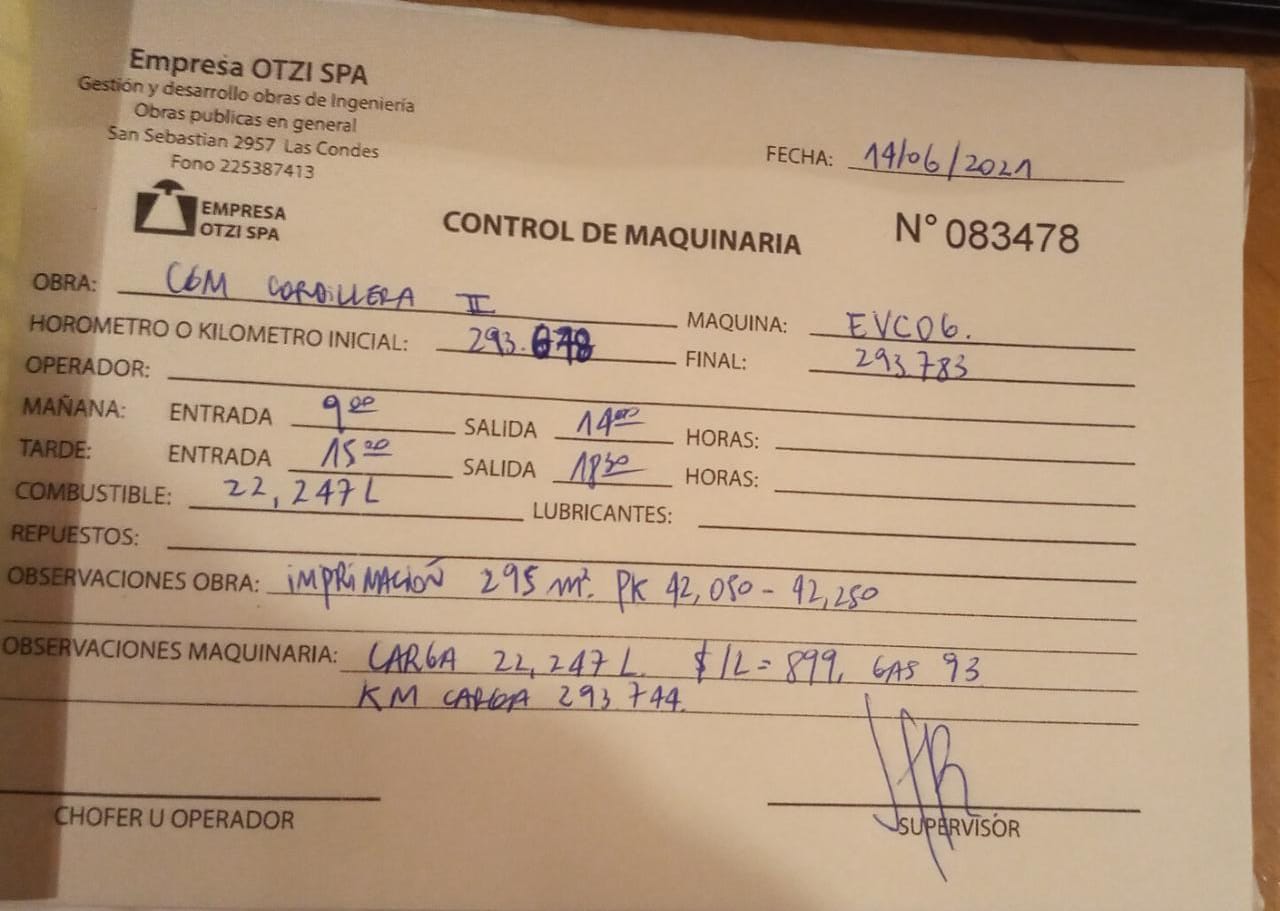 Empresa OTZI SPA
Gestión y desarrollo obras de Ingeniería
Obras publicas en general
San Sebastian 2957 Las Condes
Fono 225387413
EMPRESA
OTZI SPA
FECHA: 14/06/2021
CONTROL DE MAQUINARIA
N° 083478
OBRA: CGM CORDILLERA II
MAQUINA: EVCO6.
HOROMETRO O KILOMETRO INICIAL: 293.
FINAL: 293.783
OPERADOR:
MAÑANA: ENTRADA 9 00 SALIDA 14 00 HORAS:
TARDE: ENTRADA 15 00 SALIDA 18 30 HORAS:
COMBUSTIBLE: 22,247 L LUBRICANTES:
REPUESTOS:
OBSERVACIONES OBRA: IMPRIMACIÓN 295 m². PK 42,050 - 42,250
OBSERVACIONES MAQUINARIA: CARGA 22,247 L. $/L = 899, GAS 93
KM CARGA 293 744.
CHOFER U OPERADOR
SUPERVISOR